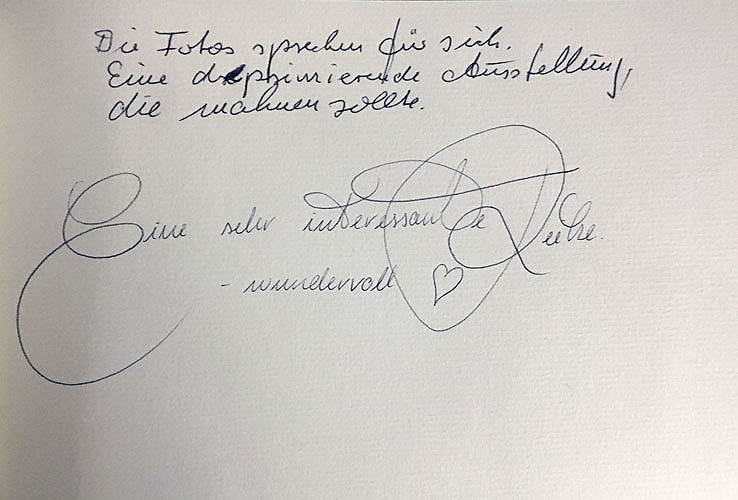 Die Fotos sprechen für sich.
Eine deprimierende Ausstellung,
die mahnen sollte.
Eine sehr interessante Reihe.
- wundervoll ♡